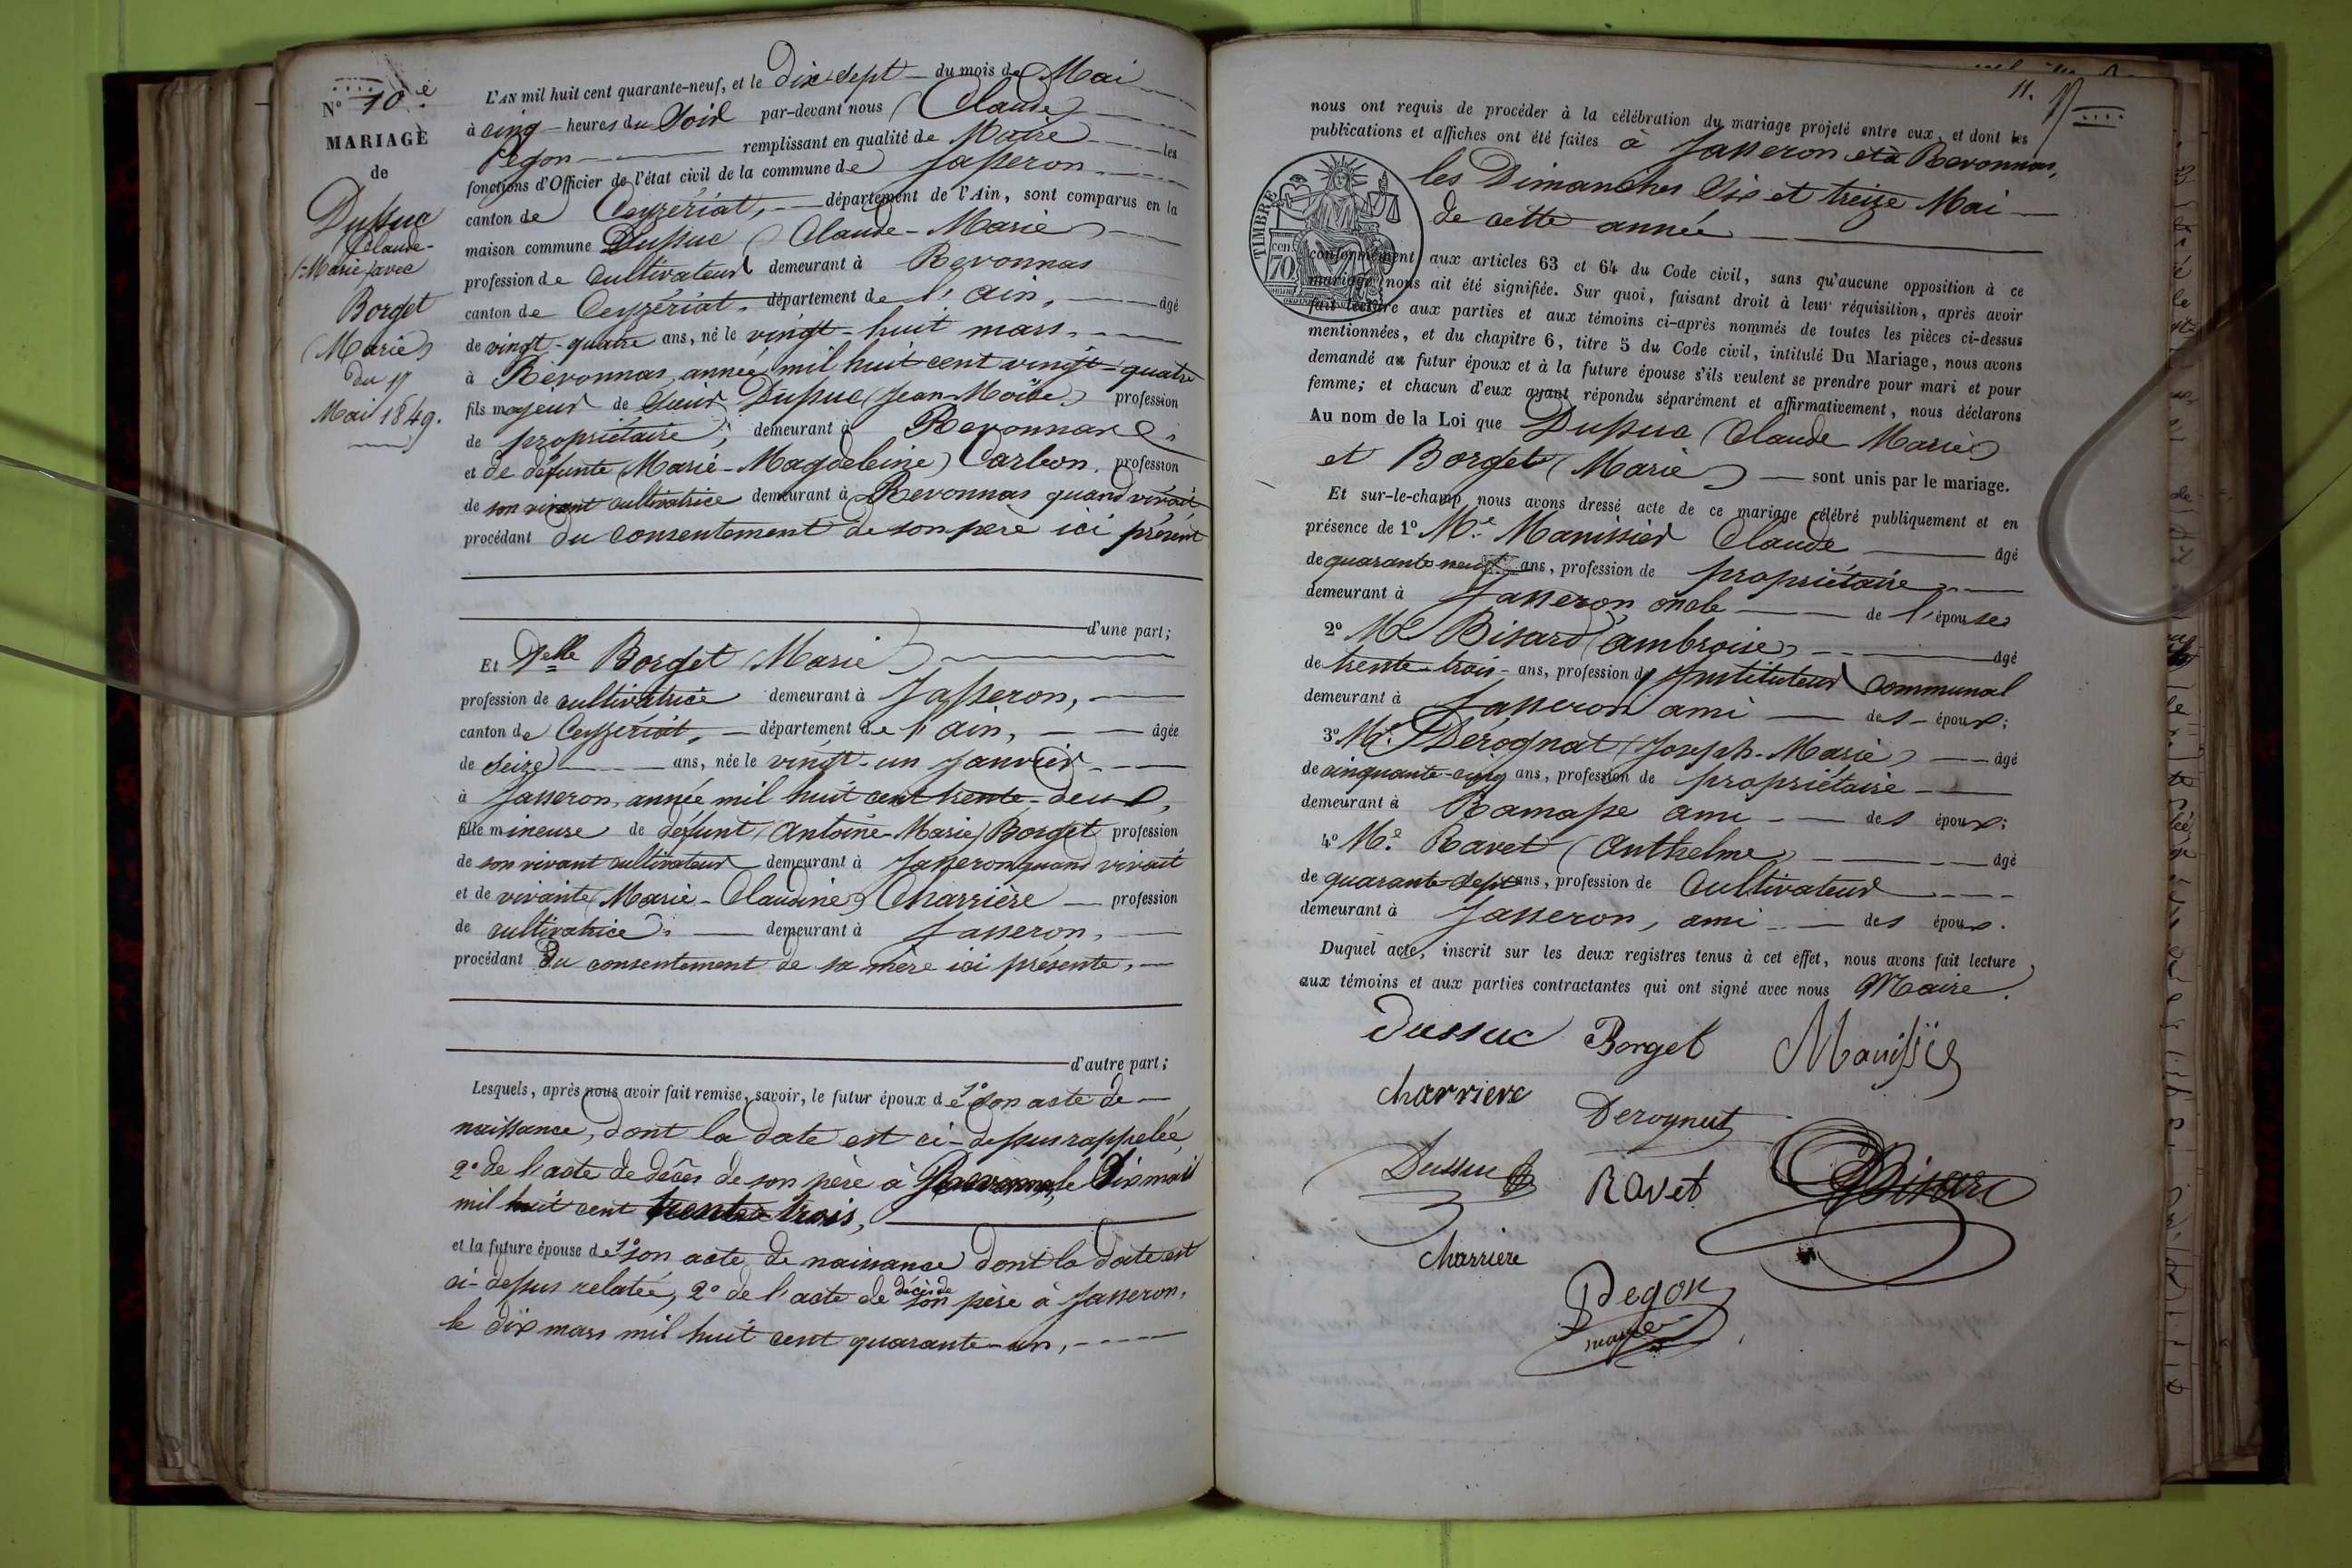 N° 10e
MARIAGE
de
Dussuc
(Claude-
Marie) avec
Borget
(Marie)
du 17
Mai 1849.
L'AN mil huit cent quarante-neuf, et le Dix-sept du mois de Mai
à cinq heures du Soir par-devant nous (Claude)
Pegon remplissant en qualité de Maire les
fonctions d'Officier de l'état civil de la commune de Jasseron
canton de Ceyzériat, département de l'Ain, sont comparus en la
maison commune Dussuc (Claude-Marie)
profession de Cultivateur demeurant à Revonnas
canton de Ceyzériat, département de l'Ain, âgé
de vingt-quatre ans, né le vingt-huit mars,
à Revonnas, année mil huit cent vingt-quatre
fils majeur de Sieur Dussuc (Jean-Moïse) profession
de propriétaire, demeurant à Revonnas
et de défunte (Marie-Magdeleine) Carleon profession
de son vivant cultivatrice demeurant à Revonnas quand vivait
procédant du consentement de son père ici présent
d'une part;
Et Delle Borget (Marie)
profession de cultivatrice demeurant à Jasseron,
canton de Ceyzériat, département de l'Ain, âgée
de Seize ans, née le vingt-un Janvier
à Jasseron, année mil huit cent trente-deux,
fille mineure de défunt (Antoine-Marie) Borget profession
de son vivant cultivateur demeurant à Jasseron quand vivait
et de vivante (Marie-Claudine) Charrière profession
de cultivatrice, demeurant à Jasseron,
procédant Du consentement de sa mère ici présente,
d'autre part;
Lesquels, après nous avoir fait remise, savoir, le futur époux de 1° son acte de
naissance, dont la date est ci-dessus rappelée,
2° de l'acte de décès de son père à Revonnas, le Dix mai
mil huit cent trente trois,
et la future épouse de 1° son acte de naissance dont la date est
ci-dessus relatée, 2° de l'acte de décès de son père à Jasseron,
le dix mars mil huit cent quarante-un,
11.
nous ont requis de procéder à la célébration du mariage projeté entre eux, et dont les
publications et affiches ont été faites à Jasseron et à Revonnas,
les Dimanches Six et treize Mai
de cette année
TIMBRE
cen
70
conformément aux articles 63 et 64 du Code civil, sans qu'aucune opposition à ce
mariage nous ait été signifiée. Sur quoi, faisant droit à leur réquisition, après avoir
fait lecture aux parties et aux témoins ci-après nommés de toutes les pièces ci-dessus
mentionnées, et du chapitre 6, titre 5 du Code civil, intitulé Du Mariage, nous avons
demandé au futur époux et à la future épouse s'ils veulent se prendre pour mari et pour
femme; et chacun d'eux ayant répondu séparément et affirmativement, nous déclarons
Au nom de la Loi que Dussuc (Claude Marie)
et Borget (Marie) sont unis par le mariage.
Et sur-le-champ nous avons dressé acte de ce mariage célébré publiquement et en
présence de 1° Me Manissier Claude âgé
de quarante-neuf ans, profession de propriétaire
demeurant à Jasseron, oncle de l'épouse
2° Me Bisard (Ambroise) âgé
de trente-trois ans, profession d'Instituteur Communal
demeurant à Jasseron ami des époux;
3° Me Dérognat (Joseph-Marie) âgé
de cinquante-cinq ans, profession de propriétaire
demeurant à Ramasse ami des époux;
4° Me Ravet (Anthelme) âgé
de quarante-sept ans, profession de Cultivateur
demeurant à Jasseron, ami des époux.
Duquel acte, inscrit sur les deux registres tenus à cet effet, nous avons fait lecture
aux témoins et aux parties contractantes qui ont signé avec nous Maire.
Dussuc Borget Manissier
Charriere Derognat
Dussuc Ravet Bisard
Charriere
Pegon
maire